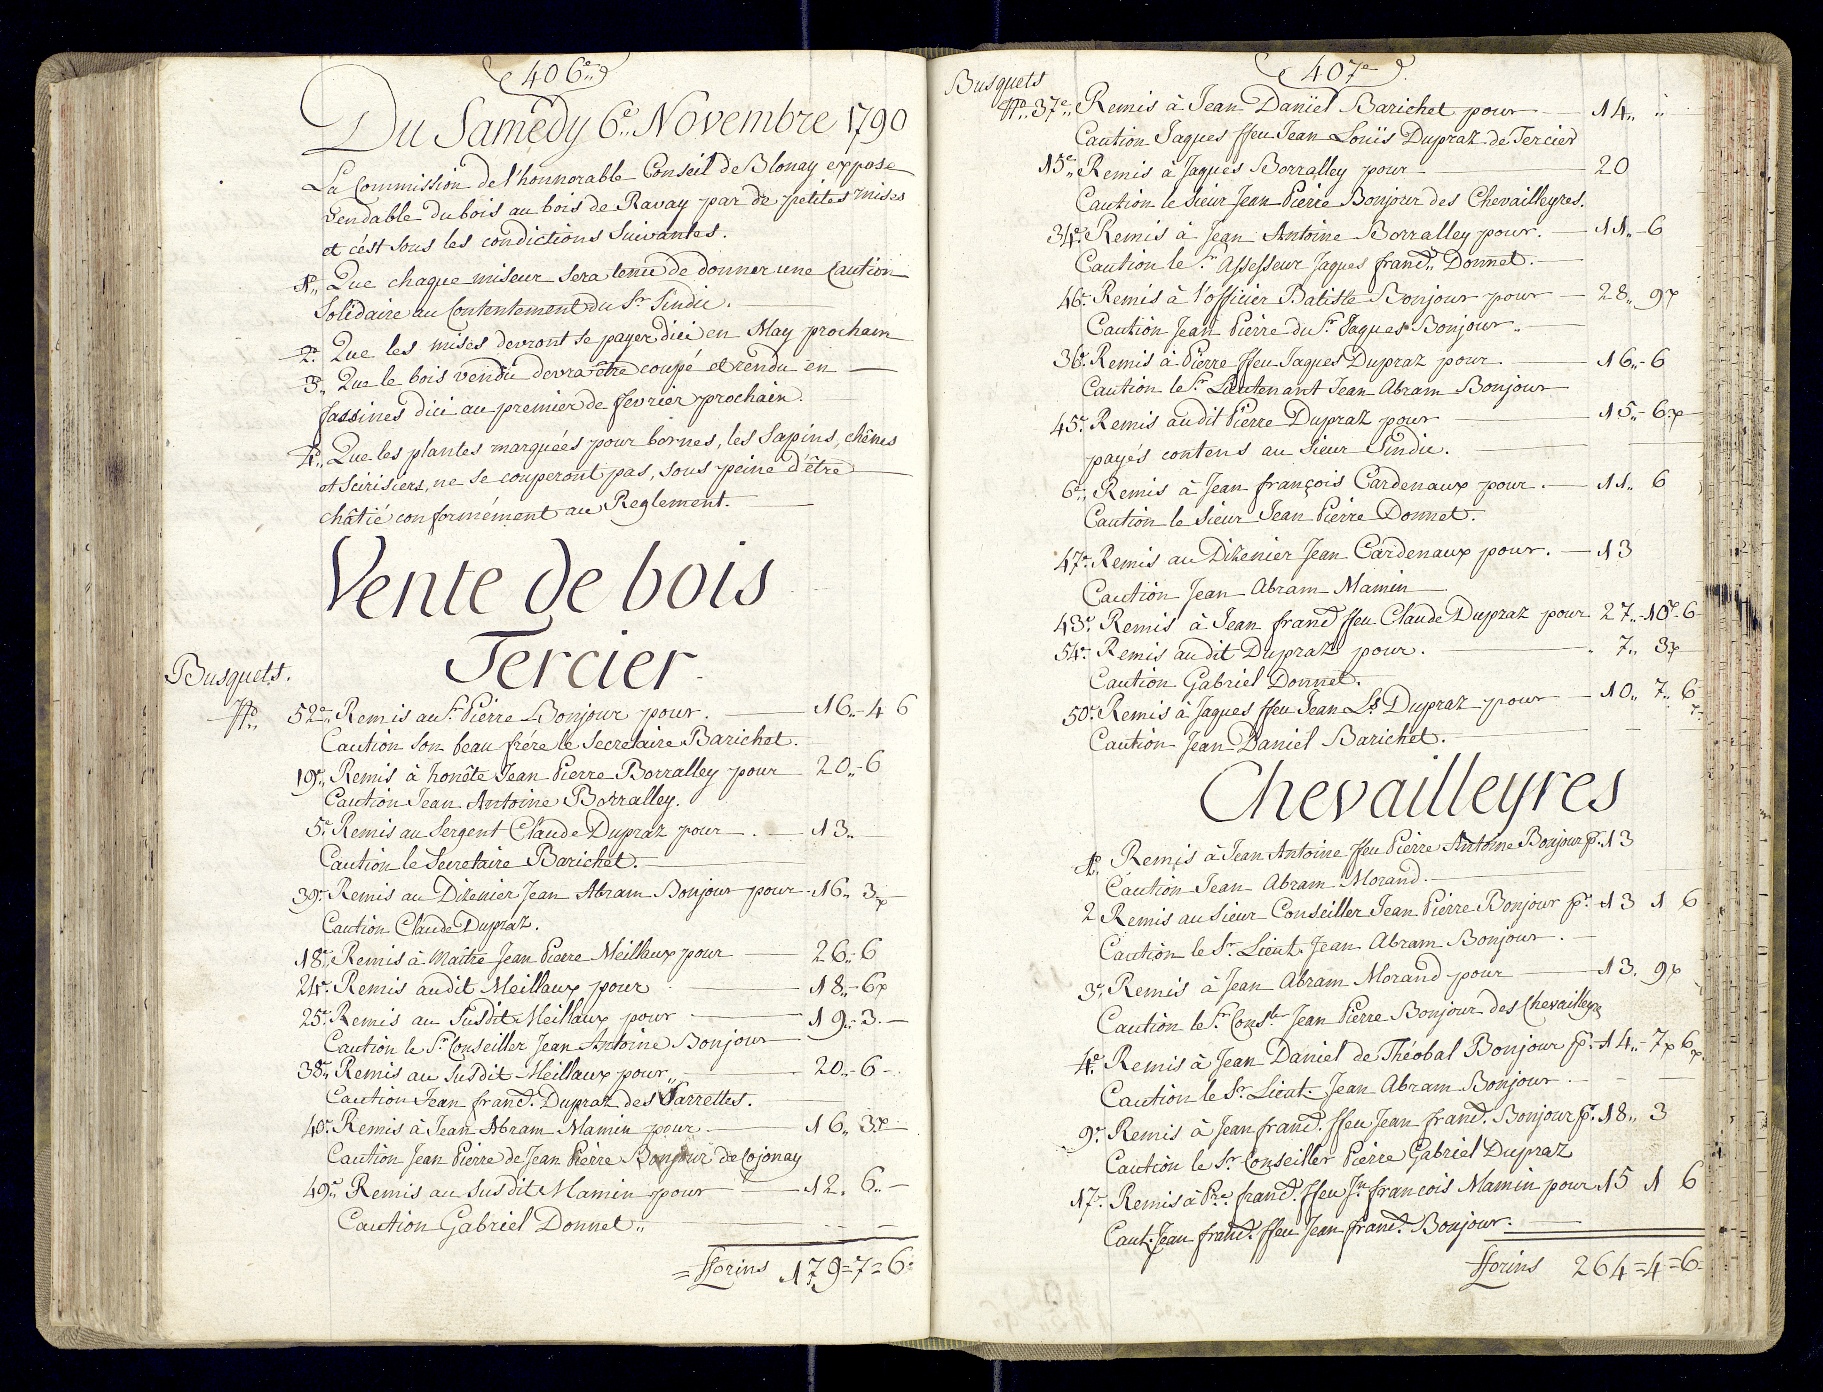 406e
Du Samedy 6e Novembre 1790
La Commission de l'honnorable Conseil de Blonay expose
vendable du bois au bois de Ravay par de petites mises
et c'est sous les condictions Suivantes.
1o,, Que chaque miseur sera tenu de donner une Caution
Solidaire au Contentement du Sr Sindic.
2o. Que les mises devront se payer dici en May prochain
3o,, Que le bois vendu devra être coupé et rendu en
fassines dici au premier de fevrier prochain.
4o,, Que les plantes marquées pour bornes, les Sapins, chênes
et Sirisiers, ne se couperont pas, sous peine d'être
châtié conformément au Reglement.
Vente de bois
Tercier
Busquets.
No,, 52e,, Remis au Sr Pierre Bonjour pour. 16,,-4 6
Caution son beau frére le Secretaire Barichet.
19e,, Remis à honête Jean Pierre Borralley pour 20,,-6
Caution Jean Antoine Borralley.
5e Remis au Sergent Claude Dupraz pour 13,,
Caution le Secretaire Barichet.
39e Remis au Dizenier Jean Abram Bonjour pour 16,, 3x
Caution Claude Dupraz.
18e,, Remis à Maître Jean Pierre Meillaux pour 26,,-6
24e. Remis audit Meillaux pour 18,,-6x
25e. Remis au Susdit Meillaux pour 19,,-3
Caution le Sr Conseiller Jean Antoine Bonjour
38e,, Remis au Susdit Meillaux pour,, 20,,-6-
Caution Jean franc. Dupraz des Sarrettes.
40e. Remis à Jean Abram Mamin pour 16,, 3x
Caution Jean Pierre de Jean Pierre Bonjour de Cojonay
49e Remis au Susdit Mamin pour 12,, 6,,-
Caution Gabriel Donnet,,
= fflorins 179=7=6=
407e
Busquets
No,, 37e,, Remis à Jean Daniel Barichet pour 14,, ,,
Caution Jaques ffeu Jean Louïs Dupraz de Tercier
15e,, Remis à Jaques Borralley pour 20
Caution le Sieur Jean Pierre Bonjour des Chevailleyres.
34e. Remis à Jean Antoine Borralley pour. 11,,-6
Caution le Sr Assesseur Jaques franc,, Donnet.
46e Remis à l'officier Batiste Bonjour pour 28,, 9x
Caution Jean Pierre du Sr Jaques Bonjour,,
36e. Remis à Pierre ffeu Jaques Dupraz pour 16,,-6
Caution le Sr Lieutenant Jean Abram Bonjour
45e. Remis audit Pierre Dupraz pour 15,,-6x
payés contens au Sieur Sindic.
6e,, Remis à Jean françois Cardenaux pour. 11,, 6
Caution le Sieur Jean Pierre Donnet.
47e. Remis au Dizenier Jean Cardenaux pour. 13
Caution Jean Abram Mamin
43e. Remis à Jean franc ffeu Claude Dupraz pour 27,,-10-6
54e. Remis audit Dupraz pour. 7,, 3x
Caution Gabriel Donnet.
50e. Remis à Jaques ffeu Jean Ls Dupraz pour 10,, 7,, 6
Caution Jean Daniel Barichet.
Chevailleyres
1o. Remis à Jean Antoine ffeu Pierre Antoine Bonjour pr. 13
Caution Jean Abram Morand.
2 Remis au Sieur Conseiller Jean Pierre Bonjour pr. 13 1 6
Caution le Sr Lieut. Jean Abram Bonjour.
3e. Remis à Jean Abram Morand pour 13. 9x
Caution le Sr Conser Jean Pierre Bonjour des Chevailleyres
4e Remis à Jean Daniel de Théobal Bonjour pr. 14,,-7x 6x
Caution le Sr Lieut. Jean Abram Bonjour.
9e. Remis à Jean franc. ffeu Jean franc. Bonjour pr. 18,, 3
Caution le Sr Conseiller Pierre Gabriel Dupraz
17e. Remis à Pre franc. ffeu Jn françois Mamin pour 15 1 6
Caut. Jean franc. ffeu Jean franc. Bonjour.
fflorins 264=4=6=